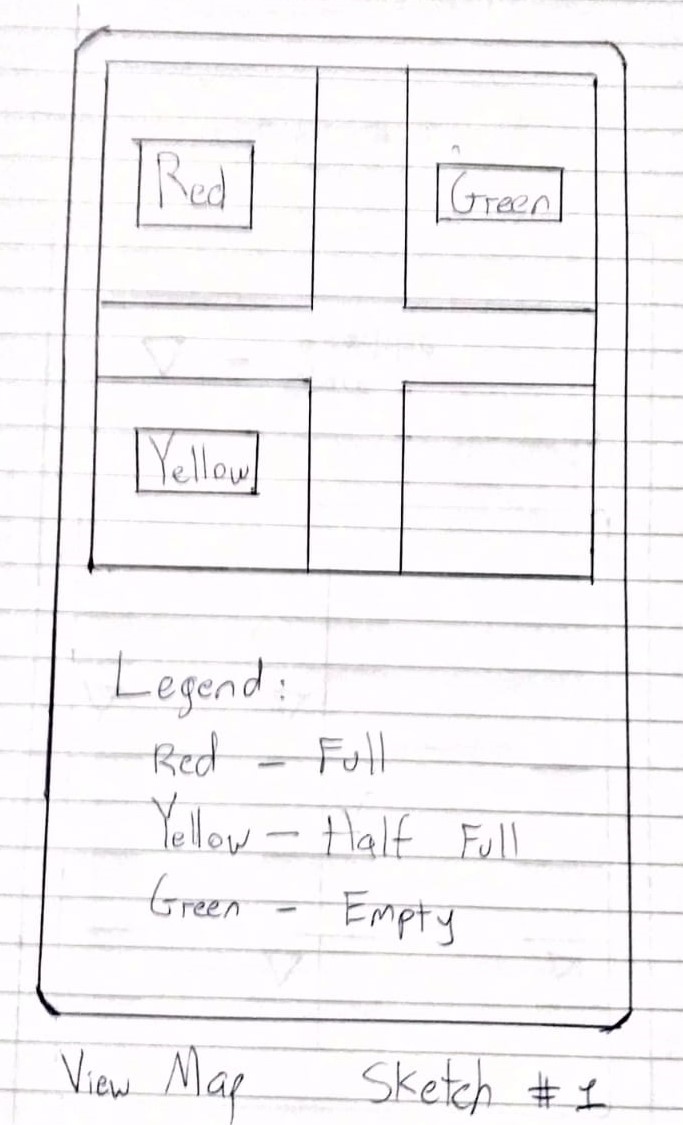 Red
Green
Yellow
Legend:
Red - Full
Yellow - Half Full
Green - Empty
View Map Sketch #1